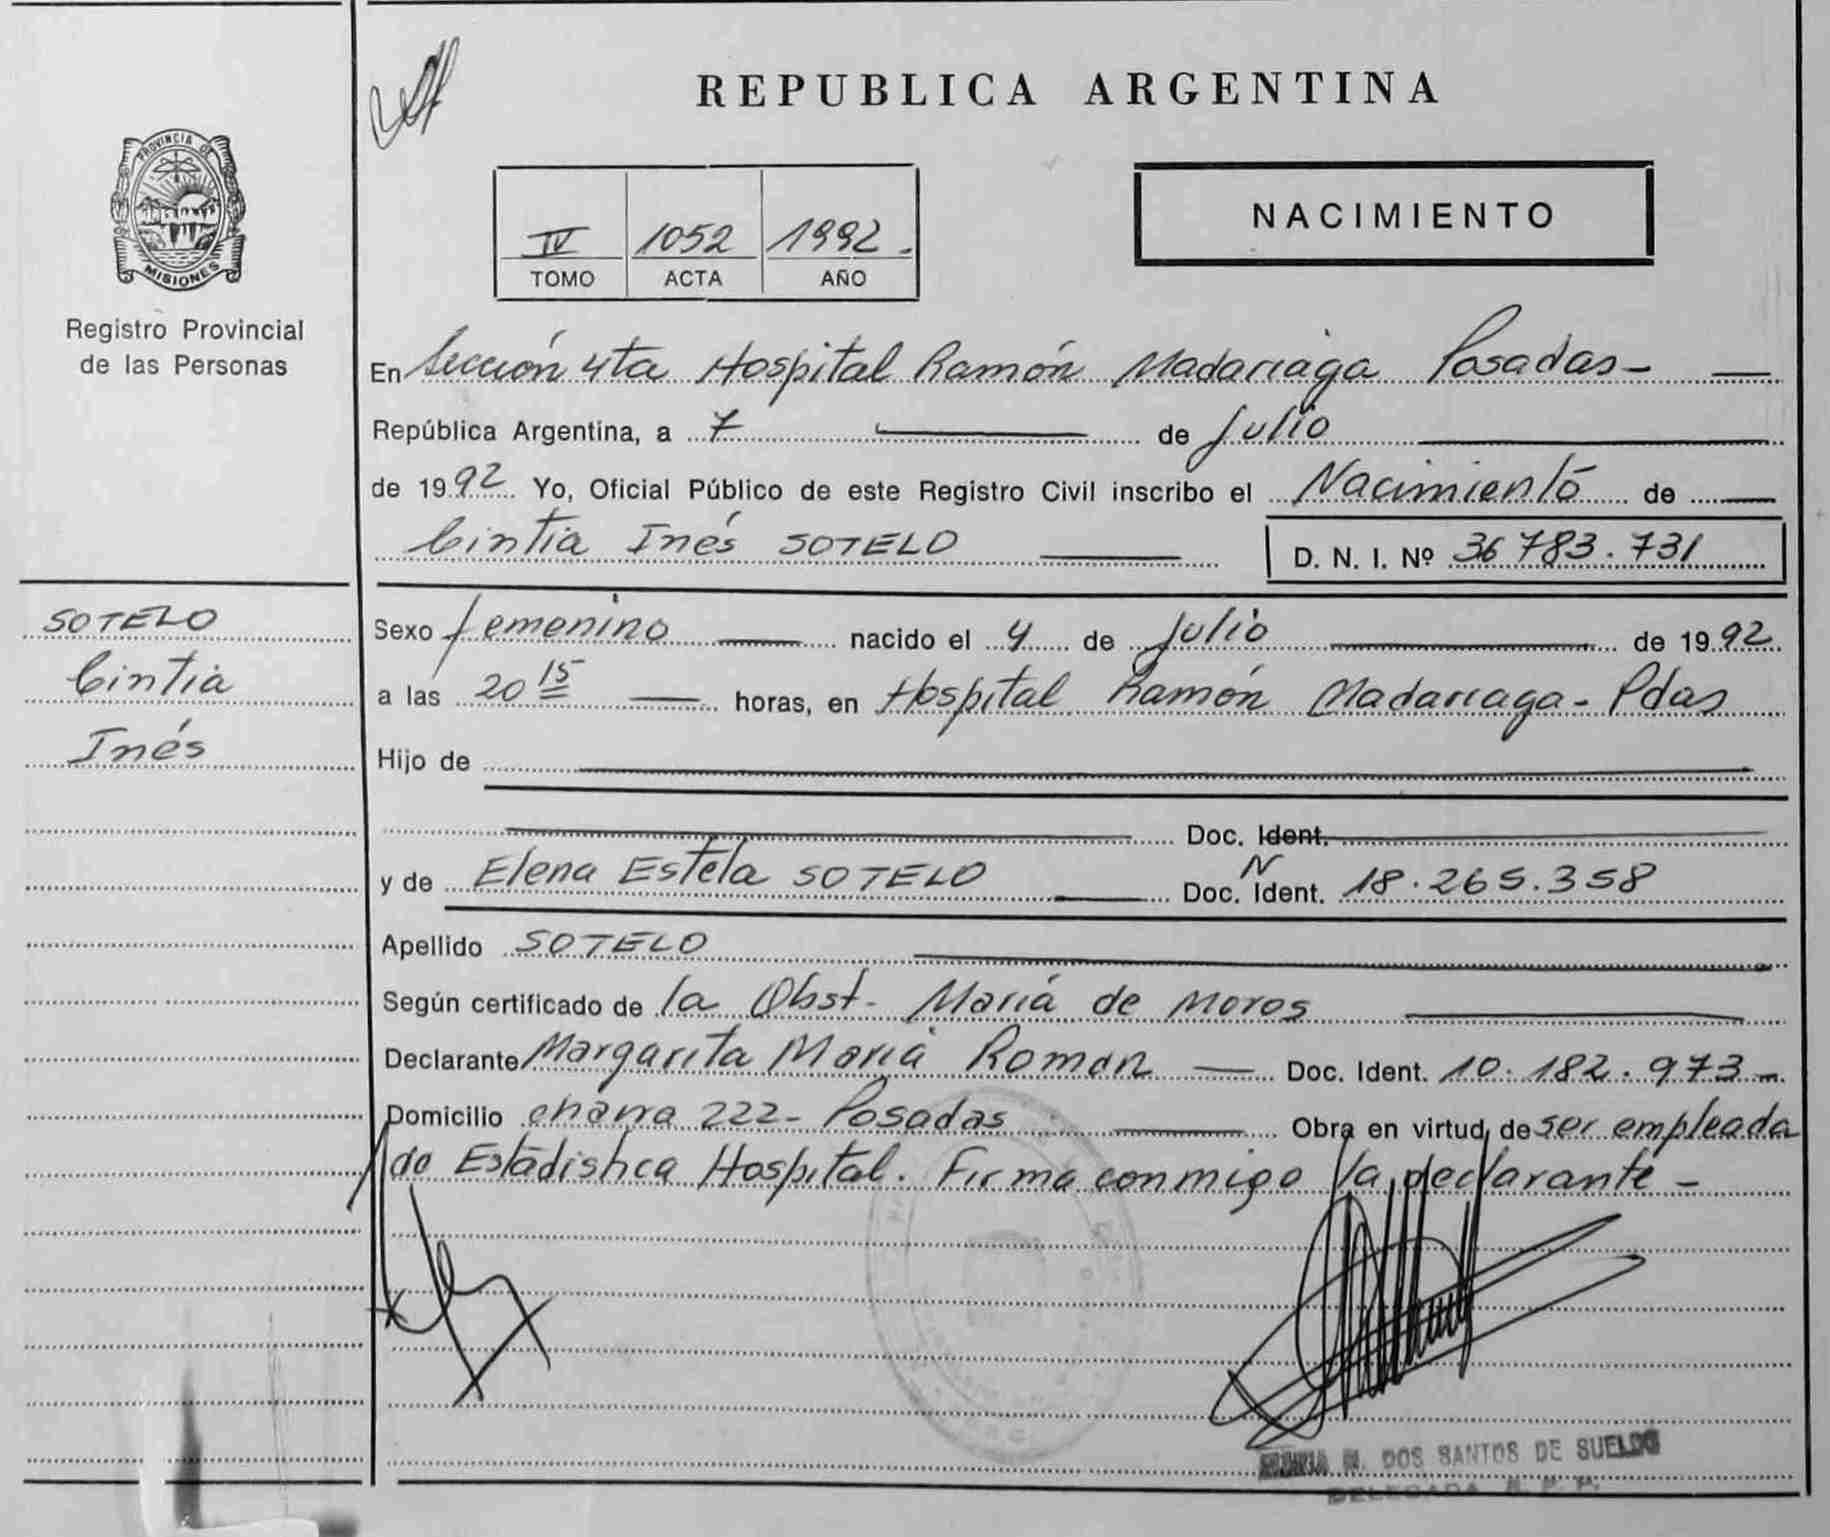 REPUBLICA ARGENTINA
PROVINCIA DE
MISIONES
Registro Provincial
de las Personas
IV 1052 1992.
TOMO ACTA AÑO
NACIMIENTO
En Sección 4ta Hospital Ramón Madariaga Posadas-
República Argentina, a 7 de Julio
de 1992 Yo, Oficial Público de este Registro Civil inscribo el Nacimiento de
Cintia Inés SOTELO D. N. I. Nº 36 783.731
SOTELO
Cintia
Inés
Sexo femenino nacido el 4 de Julio de 1992
a las 20 15 horas, en Hospital Ramón Madariaga- Pdas
Hijo de
Doc. Ident.
y de Elena Estela SOTELO Doc. N Ident. 18.265.358
Apellido SOTELO
Según certificado de la Obst- María de Moros
Declarante Margarita María Roman Doc. Ident. 10.182.973-
Domicilio chana 222- Posadas Obra en virtud de ser empleada
de Estadistica Hospital. Firma conmigo la declarante-
M. DOS SANTOS DE SUELDO
DELEGADA R. P. P.